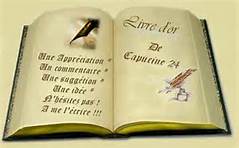 Une Appréciation *
Un commentaire *
Une suggétion *
Une idée *
N'hésites pas !
A me l'écrire !!!
Livre d'or
De
Capucine 24